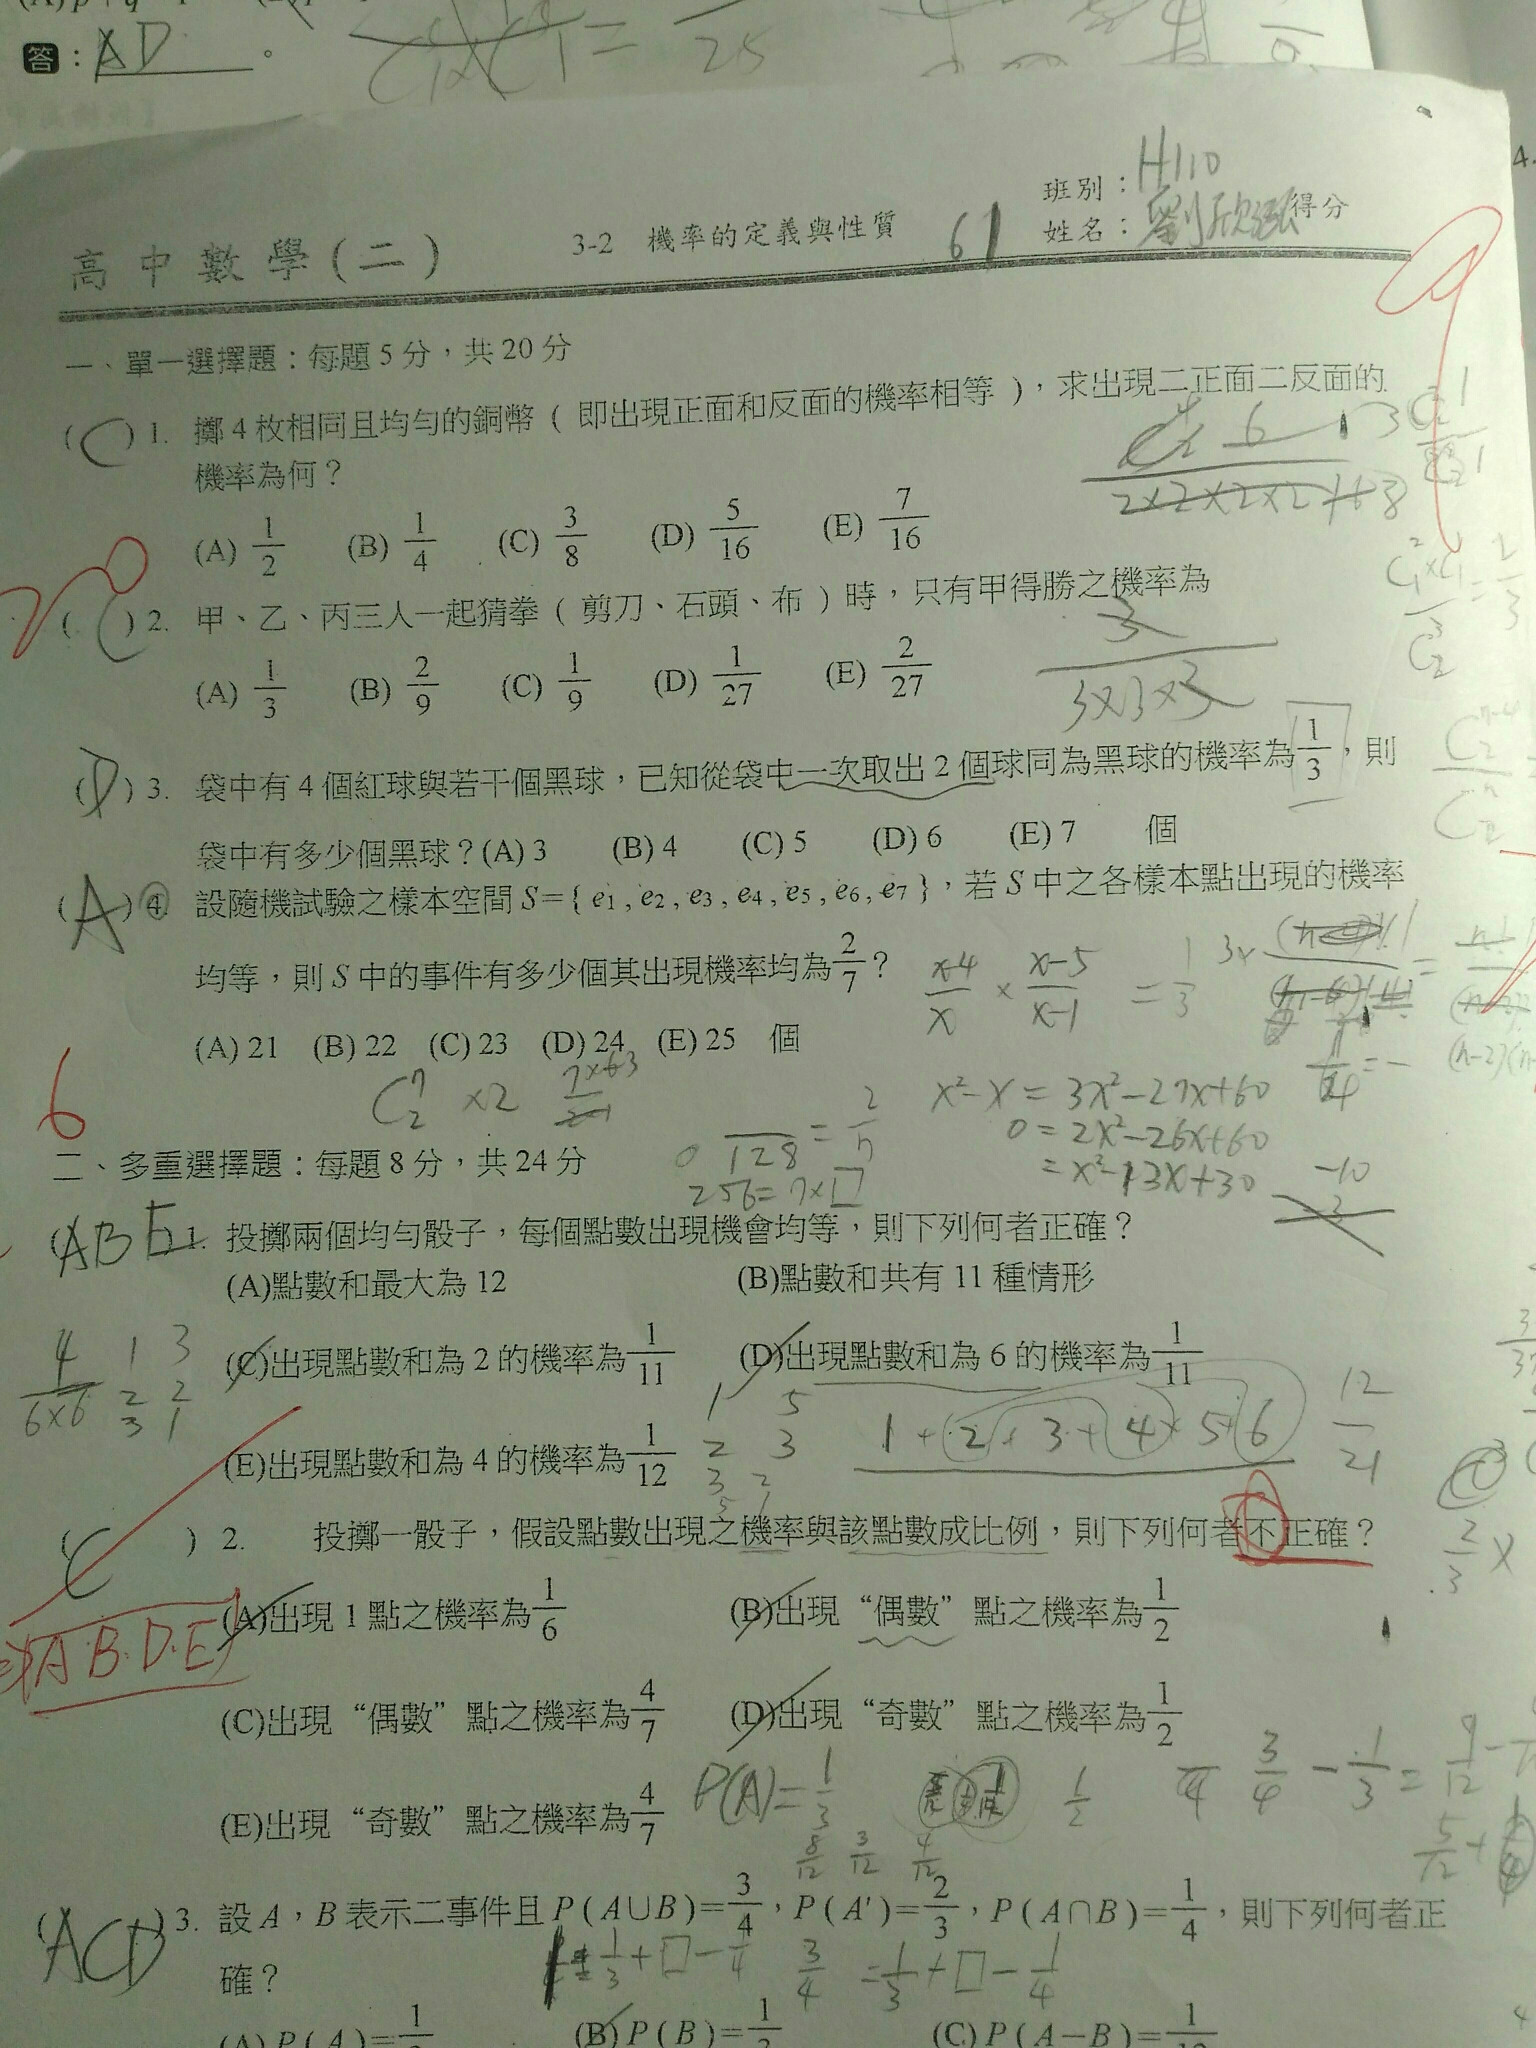 答：AD。
25
班別：H110
高中數學(二) 3-2 機率的定義與性質 61 姓名：劉欣 得分
一、單一選擇題：每題5分，共20分
(C)1. 擲4枚相同且均勻的銅幣(即出現正面和反面的機率相等)，求出現二正面二反面的
機率為何？
(A) 1/2 (B) 1/4 (C) 3/8 (D) 5/16 (E) 7/16
(C)2. 甲、乙、丙三人一起猜拳(剪刀、石頭、布)時，只有甲得勝之機率為
(A) 1/3 (B) 2/9 (C) 1/9 (D) 1/27 (E) 2/27
3/3×3×3
(D)3. 袋中有4個紅球與若干個黑球，已知從袋中一次取出2個球同為黑球的機率為1/3，則
袋中有多少個黑球？(A) 3 (B) 4 (C) 5 (D) 6 (E) 7 個
(A)4. 設隨機試驗之樣本空間S={ e1 , e2 , e3 , e4 , e5 , e6 , e7 }，若S中之各樣本點出現的機率
均等，則S中的事件有多少個其出現機率均為2/7？
x-4/x × x-5/x-1 = 1/3
(A) 21 (B) 22 (C) 23 (D) 24 (E) 25 個
C 7 2 ×2
x²-x = 3x²-27x+60
0 = 2x²-26x+60
= x²-13x+30
-10
-3
128 = 2/n
256=7×□
6
二、多重選擇題：每題8分，共24分
(ABE)1. 投擲兩個均勻骰子，每個點數出現機會均等，則下列何者正確？
(A)點數和最大為12 (B)點數和共有11種情形
(C)出現點數和為2的機率為1/11 (D)出現點數和為6的機率為1/11
4/6×6
1 3
2 2
3 1
(E)出現點數和為4的機率為1/12
1+2+3+4+5+6
12/21
(C)2. 投擲一骰子，假設點數出現之機率與該點數成比例，則下列何者不正確？
A.B.D.E
(A)出現1點之機率為1/6 (B)出現“偶數”點之機率為1/2
(C)出現“偶數”點之機率為4/7 (D)出現“奇數”點之機率為1/2
(E)出現“奇數”點之機率為4/7
P(A)=1/3
3/4 - 1/3 = 9/12 -
8/12 3/12 4/12
(ACD)3. 設A，B表示二事件且P(A∪B)=3/4，P(A')=2/3，P(A∩B)=1/4，則下列何者正
確？
3/4 = 1/3 + □ - 1/4
(A) P(A)= (B) P(B)= (C) P(A−B)=